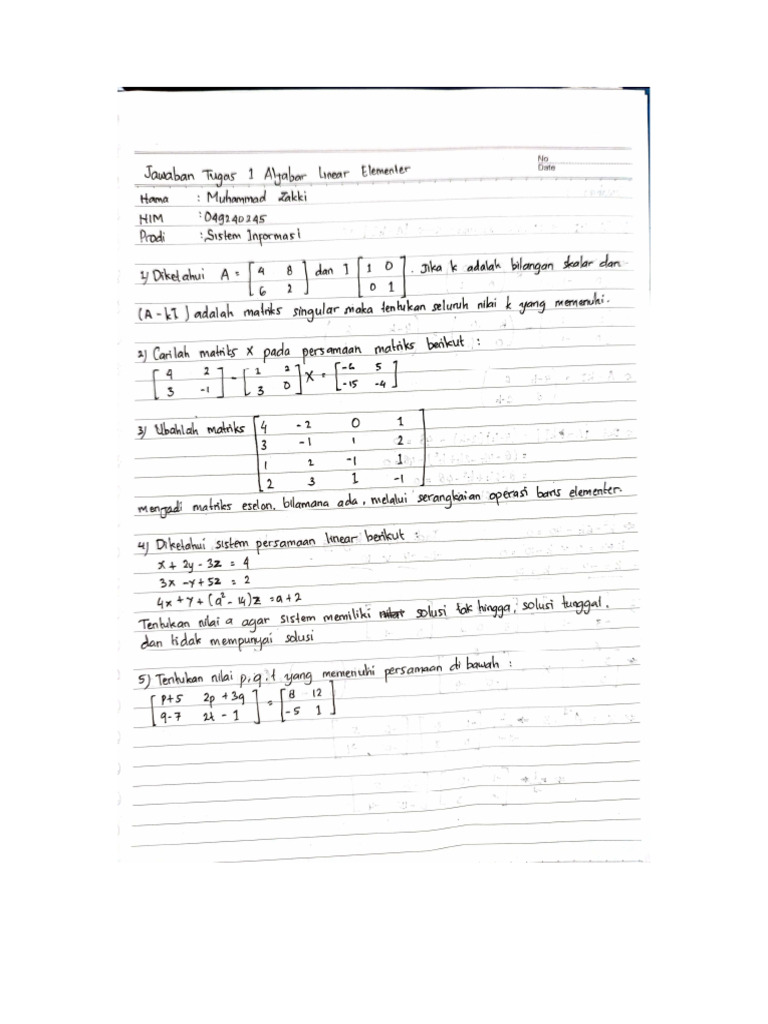 No
Date
Jawaban Tugas 1 Aljabar Linear Elementer
Nama : Muhammad Zakki
NIM : 049240245
Prodi : Sistem Informasi
1) Diketahui A = [4 8] dan I [1 0]. Jika k adalah bilangan skalar dan
[6 2] [0 1]
(A - kI) adalah matriks singular maka tentukan seluruh nilai k yang memenuhi.
2) Carilah matriks X pada persamaan matriks berikut :
[4 2] - [1 2] X = [-6 5]
[3 -1] [3 0] [-15 -4]
3) Ubahlah matriks [4 -2 0 1]
[3 -1 1 2]
[1 2 -1 1]
[2 3 1 -1]
menjadi matriks eselon, bilamana ada, melalui serangkaian operasi baris elementer.
4) Diketahui sistem persamaan linear berikut :
x + 2y - 3z = 4
3x - y + 5z = 2
4x + y + (a² - 14)z = a + 2
Tentukan nilai a agar sistem memiliki solusi tak hingga, solusi tunggal,
dan tidak mempunyai solusi
5) Tentukan nilai p, q, t yang memenuhi persamaan di bawah :
[p+5 2p + 3q] = [8 12]
[q-7 2t - 1] [-5 1]